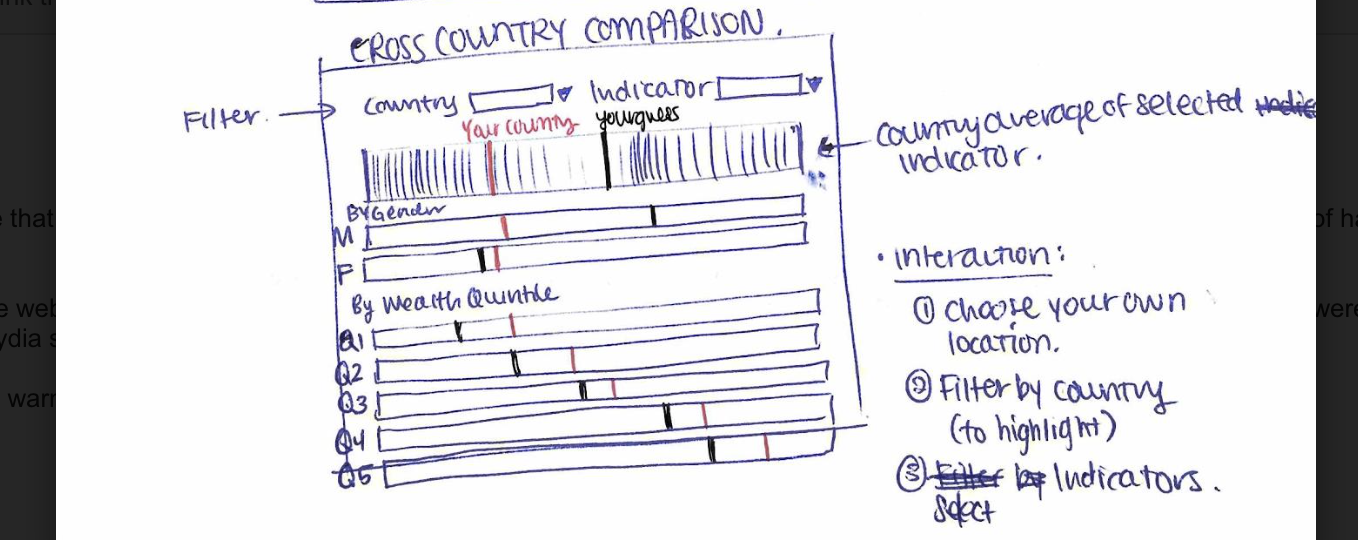 CROSS COUNTRY COMPARISON.
Filter.
Country
Indicator
Your country
yourguess
Country average of selected
indicator.
By Gender
M
F
By Wealth Quintile
Q1
Q2
Q3
Q4
Q5
• Interaction:
① Choose your own
location.
② Filter by country
(to highlight)
③ Filter by Indicators.
Select
nk th
e that
e web
ydia s
warn
of ha
were